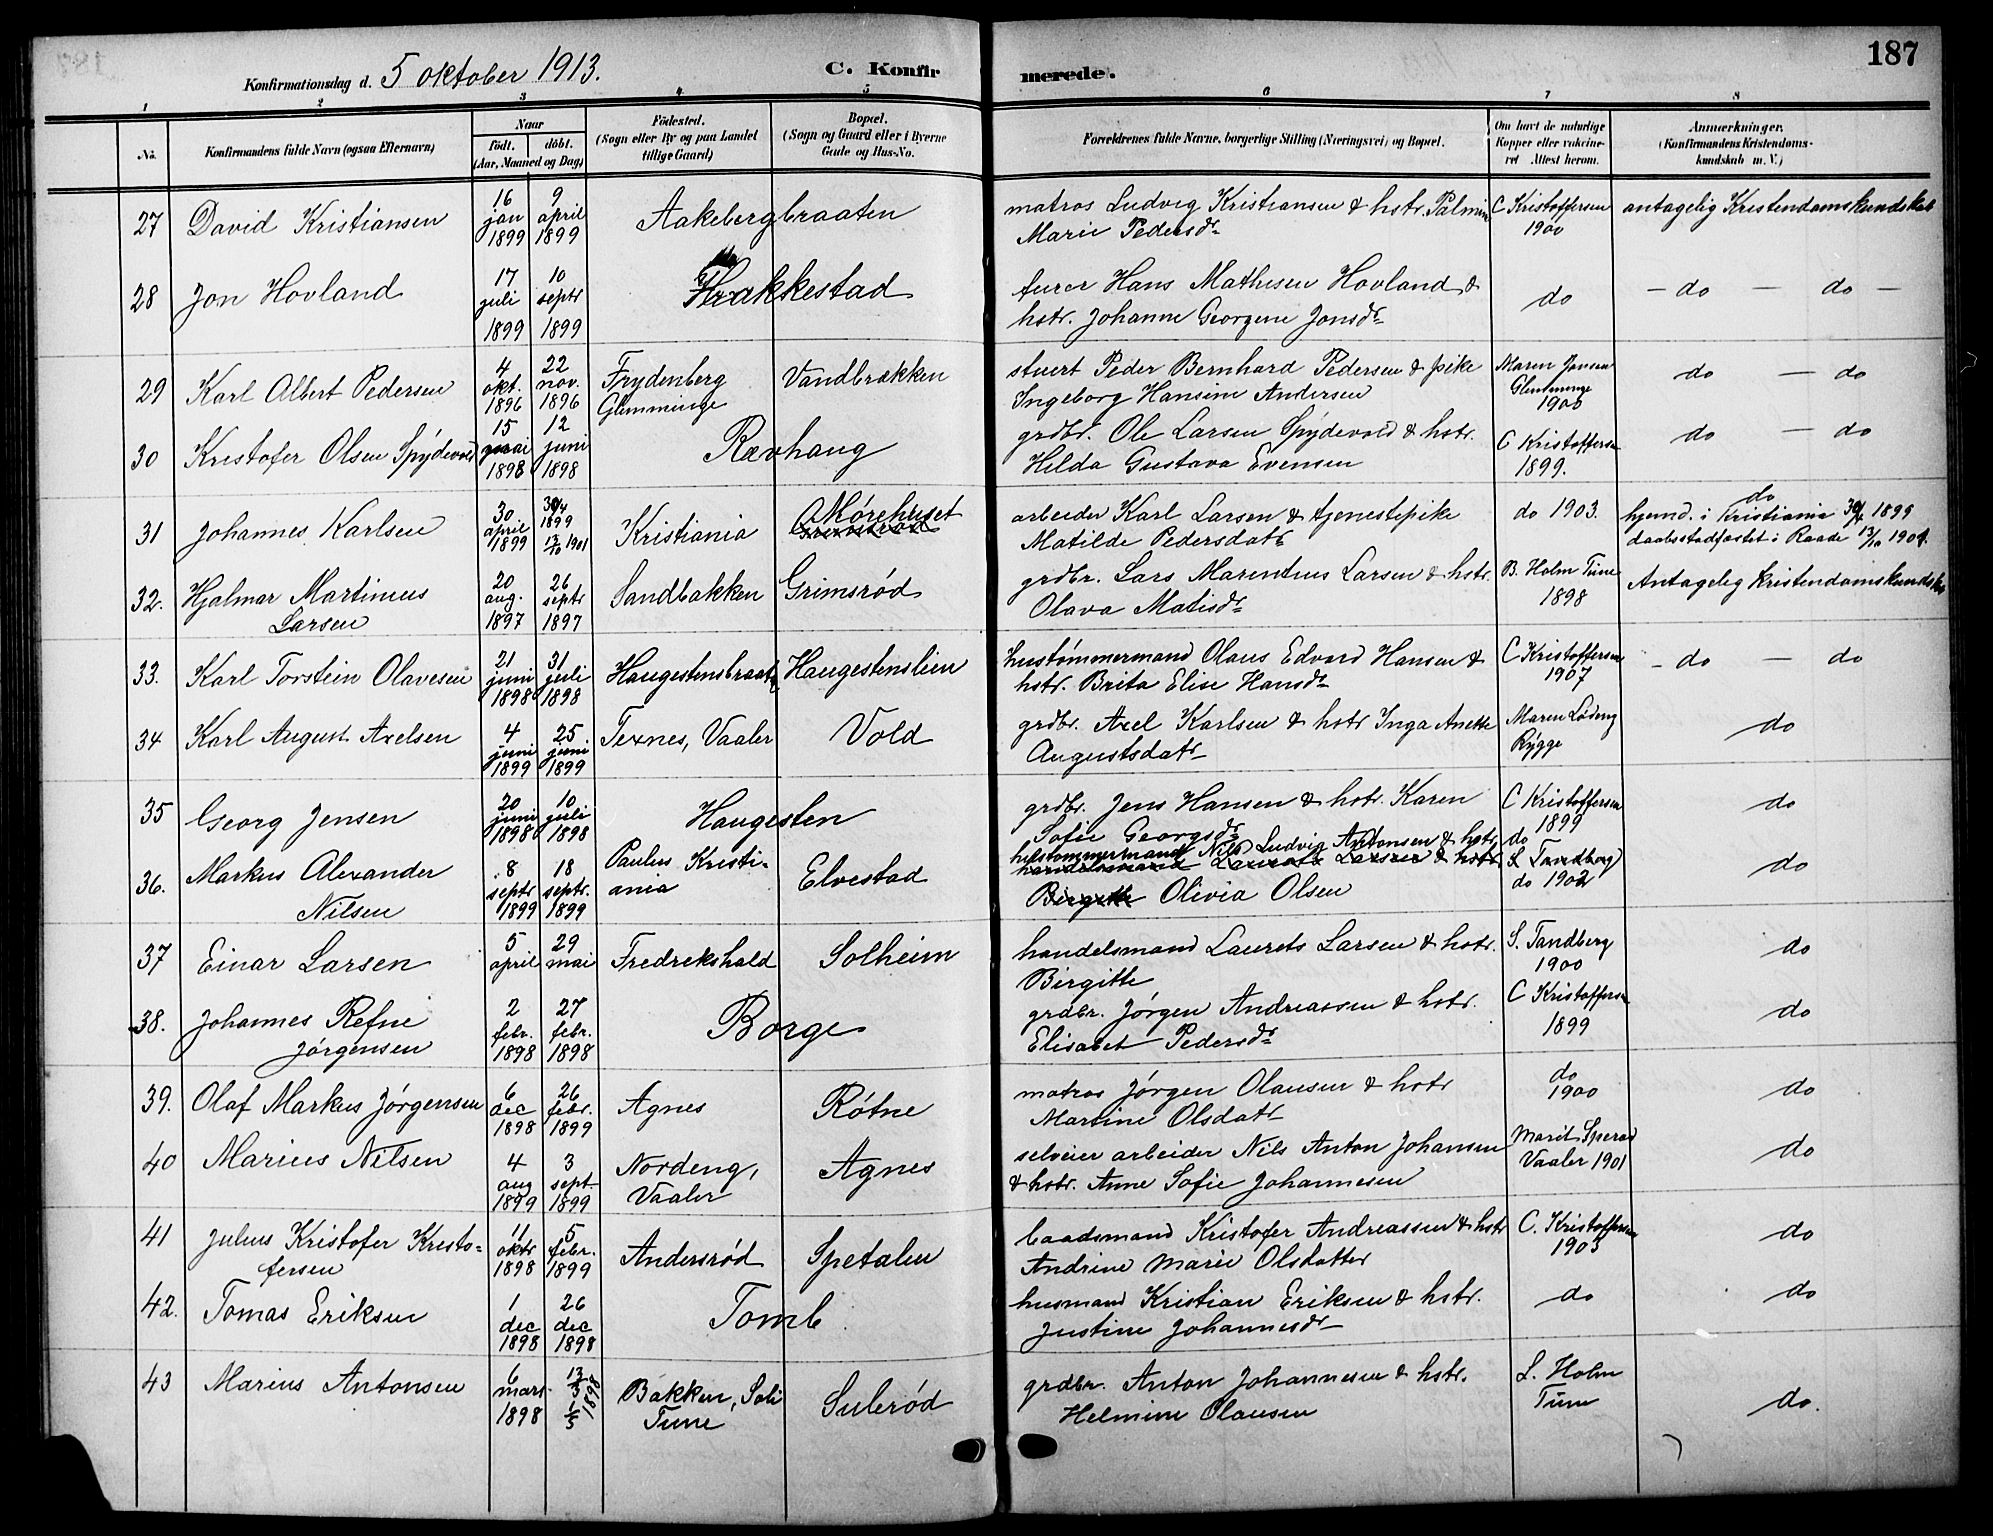 187
Konfirmationsdag d. 5 oktober 1913.
C. Konfirmerede.
1 2 3 4 5 6 7 8
No.
Konfirmandens fulde Navn (ogsaa Efternavn)
Naar
födt. döbt.
(Aar, Maaned og Dag)
Födested.
(Sogn eller By og paa Landet
tillige Gaard)
Bopæl.
(Sogn og Gaard eller i Byerne
Gade og Hus-No.
Forældrenes fulde Navne, borgerlige Stilling (Næringsvei) og Bopæl.
Om havt de naturlige
Kopper eller vakcine-
ret Attest herom.
Anmærkninger.
(Konfirmandens Kristendoms-
kundskab m. V.)
27 David Kristiansen 16 jan 1899 9 april 1899 Aakebergbraaten matros Ludvig Kristiansen & hstr. Palmine
Marie Pedersdr C Kristoffersen 1900 antagelig Kristendomskundskab
28 Jon Hovland 17 juli 1899 10 septr 1899 Hrakkestad furer Hans Mathisen Hovland &
hstr. Johanne Georgine Jonsdr do - do - do -
29 Karl Albert Pedersen 4 okt. 1896 22 nov. 1896 Frydenberg
Glemminge Vandbrækken stuert Peder Bernhard Pedersen & pike
Ingeborg Hansine Andersen Maren Jansen
Glemminge
1900 do - do
30 Kristofer Olsen Spydevold 15 mai 1898 12 juni 1898 Ravhaug grdbr. Ole Larsen Spydevold & hstr.
Hilda Gustava Evensen C Kristoffersen
1899. do - do
31 Johannes Karlsen 30 april 1899 30/4 1899 13/10 1901 Kristiania Mørehuset arbeider Karl Larsen & tjenestepike
Matilde Pedersdatr do 1903. do
hjemd. i Kristiania 30/4 1899
daabsstadfæstet i Raade 13/10 1901.
32. Hjalmar Martinius
Larsen 20 aug. 1897 26 septr 1897 Sandbakken Grimsrød grdbr. Lars Marentius Larsen & hstr.
Olava Matisdr B. Holm Tune
1898 Antagelig Kristendomskundskab
33. Karl Torstein Olavesen 21 juni 1898 31 juli 1898 Haugestensbraat Haugestenslien hustømmermand Olaus Edvard Hansen &
hstr. Brita Elise Hansdr C Kristoffersen
1907 - do - do
34 Karl August Axelsen 4 juni 1899 25 juni 1899 Texnes, Vaaler Vold grdbr. Axel Karlsen & hstr Inga Anette
Augustsdatr Maren Løding
Rygge do
35 Georg Jensen 20 juni 1898 10 juli 1898 Haugesten grdbr. Jens Hansen & hstr. Karen
Sofie Georgsdr C Kristoffersen
1899 do
36. Markus Alexander
Nilsen 8 septr 1899 18 septr. 1899 Paulus Kristi-
ania Elvestad hustømmermand Nils Ludvig Antonsen & hstr
handelsmand Laurets Larsen & hstr
Birgitte Olivia Olsen do
S. Tandberg
do 1902 do
37 Einar Larsen 5 april 29 mai Fredrekshald Solheim handelsmand Laurets Larsen & hstr.
Birgitte S. Tandberg
1900 do
38. Johannes Refne
Jørgensen 2 febr. 1898 27 febr. 1898 Borge grdbr. Jørgen Andreassen & hstr.
Elisabet Pedersdr C Kristoffersen
1899 do
39. Olaf Markus Jørgensen 6 dec 1898 26 febr. 1899 Agnes Røtne matros Jørgen Olausen & hstr
Martine Olsdatr do
1900 do
40 Marius Nilsen 4 aug 1899 3 sept. 1899 Nordeng,
Vaaler Agnes selveier arbeider Nils Anton Johansen
& hstr. Anne Sofie Johannesen Marit Sperad
Vaaler 1901 do
41 Julius Kristofer Kristo-
fersen 11 oktr 1898 5 febr. 1899 Andersrød Spetalen baadsmand Kristofer Andreassen & hstr
Andrine Marie Olsdatter C. Kristoffersen
1903 do
42. Tomas Eriksen 1 dec 1898 26 dec 1898 Tomb husmand Kristian Eriksen & hstr.
Justine Johannesdr do do
43 Marius Antonsen 6 mars. 1898 13/3 1/5 1898 Bakken, Soli
Tune Sulerød grdbr. Anton Johannesen & hstr.
Helmine Olausen L. Holm
Tune do.